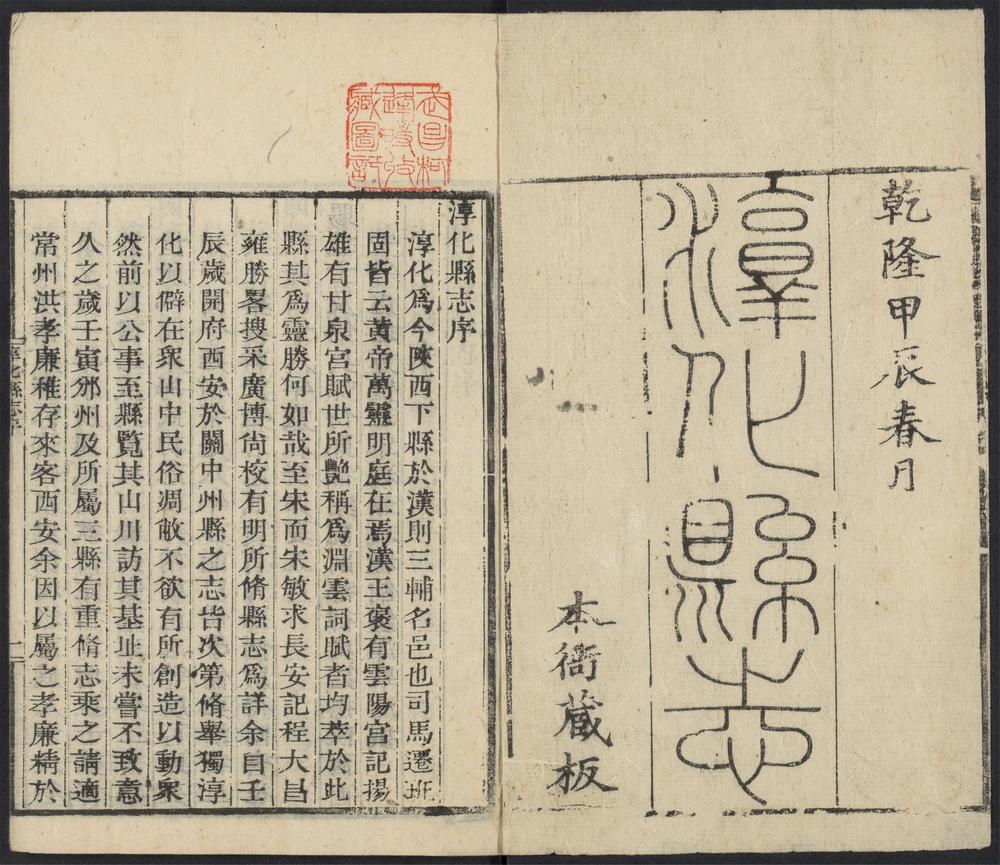 乾隆甲辰春月
淳化縣志
本衙藏板
武昌柯
逢時收
藏圖記
淳化縣志序
淳化爲今陝西下縣於漢則三輔名邑也司馬遷班
固皆云黃帝萬靈明庭在焉漢王襃有雲陽宮記揚
雄有甘泉宮賦世所艷稱爲淵雲詞賦者均萃於此
縣其爲靈勝何如哉至宋而宋敏求長安記程大昌
雍勝畧搜采廣博尙校有明所脩縣志爲詳余自壬
辰歲開府西安於關中州縣之志皆次第脩舉獨淳
化以僻在衆山中民俗凋敝不欲有所創造以動衆
然前以公事至縣覽其山川訪其基址未嘗不致意
久之歲壬寅邠州及所屬三縣有重脩志乘之請適
常州洪孝廉稚存來客西安余因以屬之孝廉精於
淳化縣志序